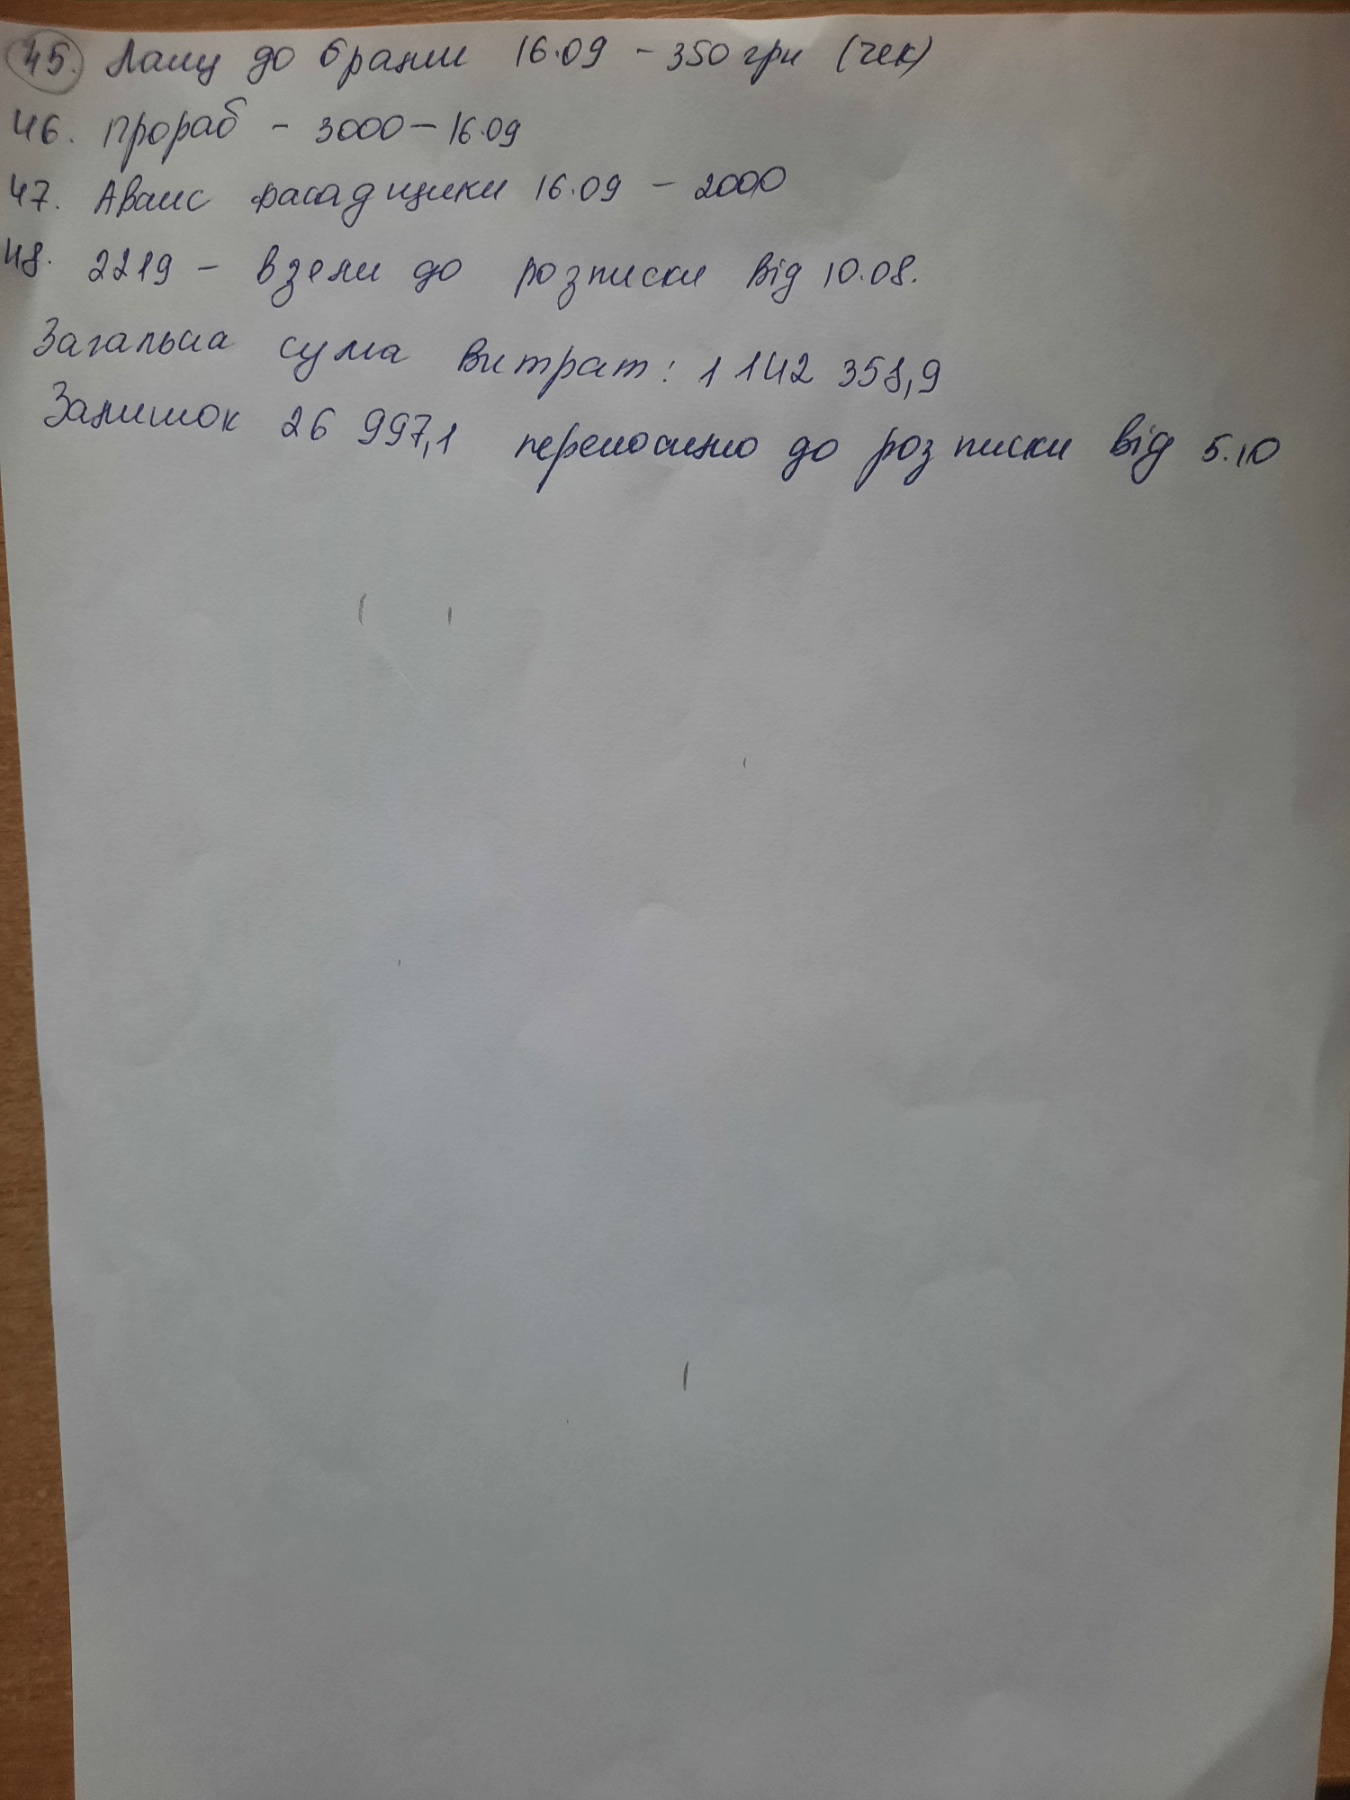 45. Ланц до брами 16.09 - 350 грн (чек)
46. Прораб - 3000 - 16.09
47. Аванс фасадщики 16.09 - 2000
48. 2219 - взели до розписки від 10.08.
Загальна сума витрат: 1 142 358,9
Залишок 26 997,1 переносимо до розписки від 5.10